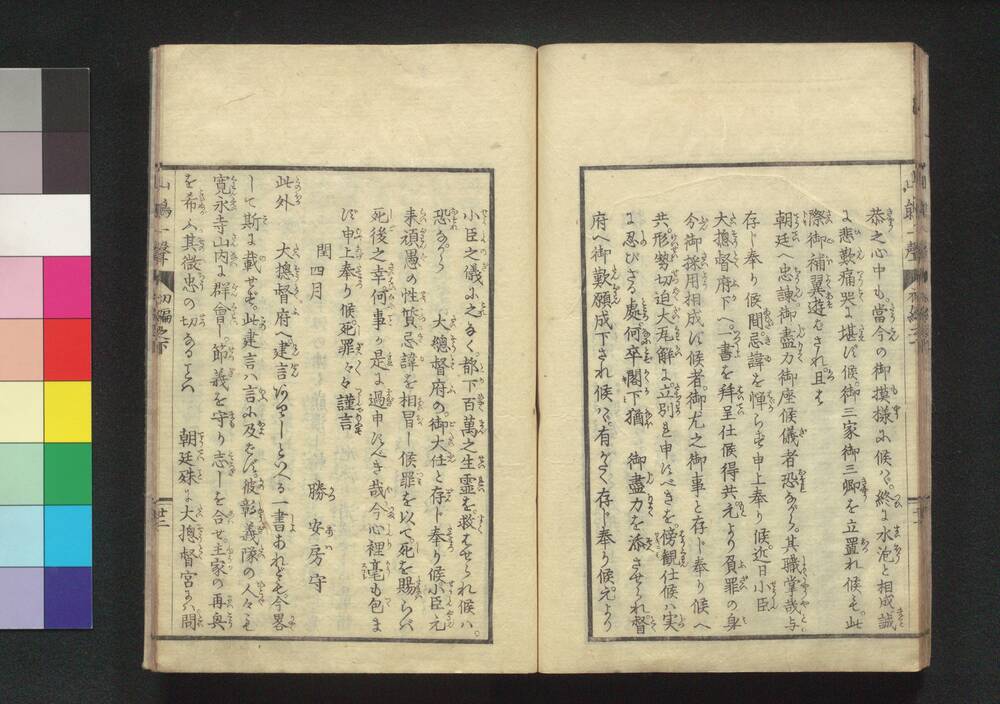 恭之心中も。當今の御摸様に候ハヾ。終に水泡と相成。誠
に悲歎痛哭に堪ず候。御三家御三卿を立置れ候も。此
際御補翼遊バされ。且は
朝廷へ忠諌御盡力御座候儀者恐ながら。其職掌哉与
存じ奉り候間。忌諱を憚らず申上奉り候。近日小臣
大摠督府下へ。一書を拜呈仕候得共元より負罪の身
今御採用相成ず候者。御尤之御事と存じ奉り候へ
共。形勢切迫大瓦解に立別れ申べきを。傍観仕候ハ実
に忍びざる處。何卒閣下猶 御盡力を添させられ督
府へ御歎願成下され候ハヾ。有がたく存じ奉り候。元より
小臣之儀に之なく。都下百萬之生霊を。救はせられ候ハ。
恐ながら 大摠督府の。御大任と存じ奉り候小臣元
来頑愚の性質忌諱を相冒し候罪を以て。死を賜らバ
死後之幸何事か是に過申べき哉。今心裡毫も包ま
ず申上奉り候。死罪々々謹言
閏四月 勝 安房守
此外 大摠督府へ建言ありしといへる一書あれども。今畧
して斯に載せず。此建言ハ言に及ばず。彼彰義隊の人々も
寛永寺山内に群會し。節義を守り志しを合せ。主家の再興
を希ふ其微忠の切なること 朝廷殊に大摠督宮にハ聞
山嶋一聲 初編之下 廿二